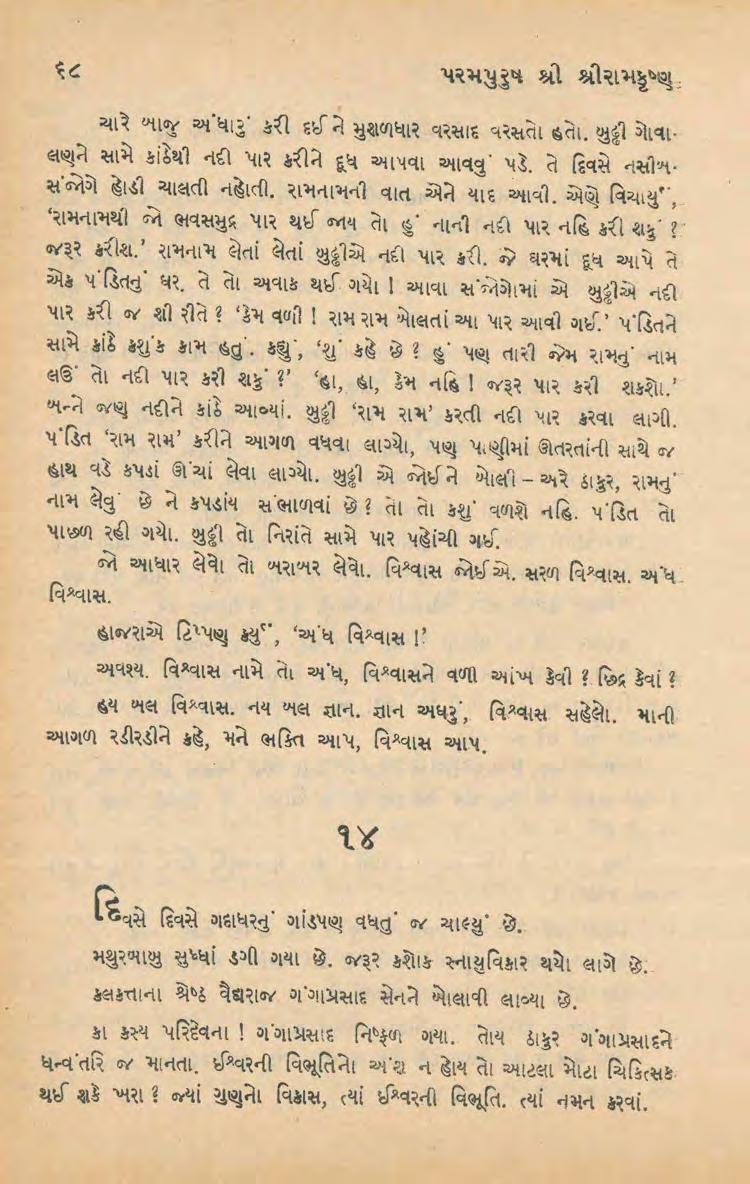 ૬૮
પરમપુરુષ શ્રી શ્રીરામકૃષ્ણ
ચારે બાજુ અંધારું કરી દઈને મુશળધાર વરસાદ વરસતો હતો. બુઢ્ઢી ગોવા-
લણને સામે કાંઠેથી નદી પાર કરીને દૂધ આપવા આવવું પડે. તે દિવસે નસીબ-
સંજોગે હોડી ચાલતી નહોતી. રામનામની વાત એને યાદ આવી. એણે વિચાર્યું,
‘રામનામથી જો ભવસમુદ્ર પાર થઈ જાય તો હું નાની નદી પાર નહિ કરી શકું ?
જરૂર કરીશ.’ રામનામ લેતાં લેતાં બુઢ્ઢીએ નદી પાર કરી. જે ઘરમાં દૂધ આપે તે
એક પંડિતનું ઘર. તે તો અવાક થઈ ગયો ! આવા સંજોગોમાં એ બુઢ્ઢીએ નદી
પાર કરી જ શી રીતે ? ‘કેમ વળી ! રામ રામ બોલતાં આ પાર આવી ગઈ.’ પંડિતને
સામે કાંઠે કશુંક કામ હતું. કહ્યું, ‘શું કહે છે ? હું પણ તારી જેમ રામનું નામ
લઉં તો નદી પાર કરી શકું ?’ ‘હા, હા, કેમ નહિ ! જરૂર પાર કરી શકશો.’
બન્ને જણ નદીને કાંઠે આવ્યાં. બુઢ્ઢી ‘રામ રામ’ કરતી નદી પાર કરવા લાગી.
પંડિત ‘રામ રામ’ કરીને આગળ વધવા લાગ્યો, પણ પાણીમાં ઊતરતાંની સાથે જ
હાથ વડે કપડાં ઊંચાં લેવા લાગ્યો. બુઢ્ઢી એ જોઈને બોલી – અરે ઠાકુર, રામનું
નામ લેવું છે ને કપડાંય સંભાળવાં છે ? તો તો કશું વળશે નહિ. પંડિત તો
પાછળ રહી ગયો. બુઢ્ઢી તો નિરાંતે સામે પાર પહોંચી ગઈ.
જો આધાર લેવો તો બરાબર લેવો. વિશ્વાસ જોઈએ. સરળ વિશ્વાસ. અંધ
વિશ્વાસ.
હાજરાએ ટિપ્પણ કર્યું, ‘અંધ વિશ્વાસ !’
અવશ્ય. વિશ્વાસ નામે તો અંધ, વિશ્વાસને વળી આંખ કેવી ? છિદ્ર કેવાં ?
હય બલ વિશ્વાસ. નય બલ જ્ઞાન. જ્ઞાન અઘરું, વિશ્વાસ સહેલો. માની
આગળ રડીરડીને કહે, મને ભક્તિ આપ, વિશ્વાસ આપ.
૧૪
દિવસે દિવસે ગદાધરનું ગાંડપણ વધતું જ ચાલ્યું છે.
મથુરબાબુ સુધ્ધાં ડગી ગયા છે. જરૂર કશોક સ્નાયુવિકાર થયો લાગે છે.
કલકત્તાના શ્રેષ્ઠ વૈદ્યરાજ ગંગાપ્રસાદ સેનને બોલાવી લાવ્યા છે.
કા કસ્ય પરિદેવના ! ગંગાપ્રસાદ નિષ્ફળ ગયા. તોય ઠાકુર ગંગાપ્રસાદને
ધન્વંતરિ જ માનતા. ઈશ્વરની વિભૂતિનો અંશ ન હોય તો આટલા મોટા ચિકિત્સક
થઈ શકે ખરા ? જ્યાં ગુણનો વિકાસ, ત્યાં ઈશ્વરની વિભૂતિ. ત્યાં નમન કરવાં.